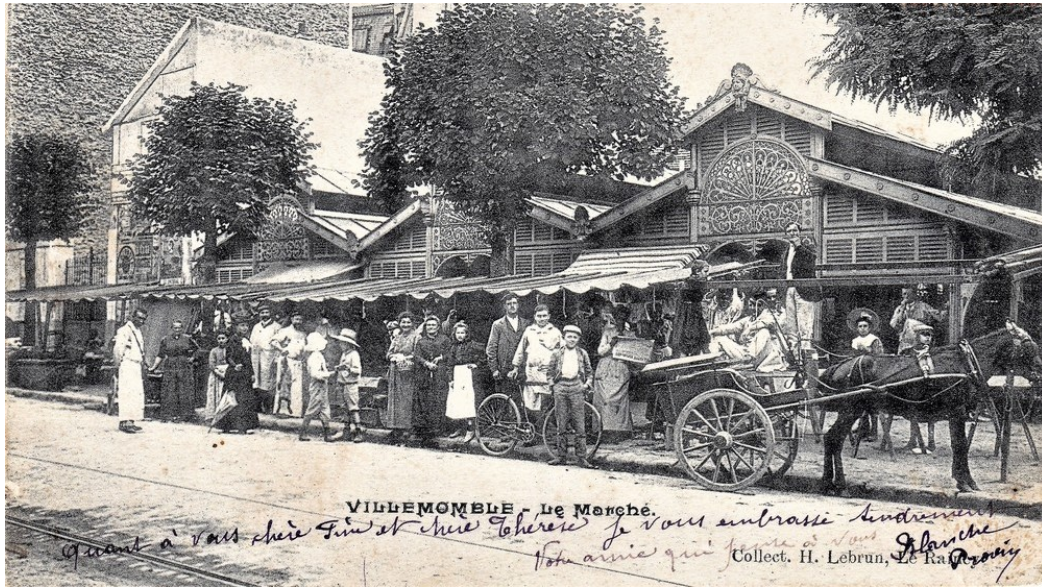 VILLEMOMBLE - Le Marché.
Quant à vous chère Fine et chère Thérèse je vous embrasse tendrement
Votre amie qui pense à vous
Blanche
Collect. H. Lebrun, Le Raincy